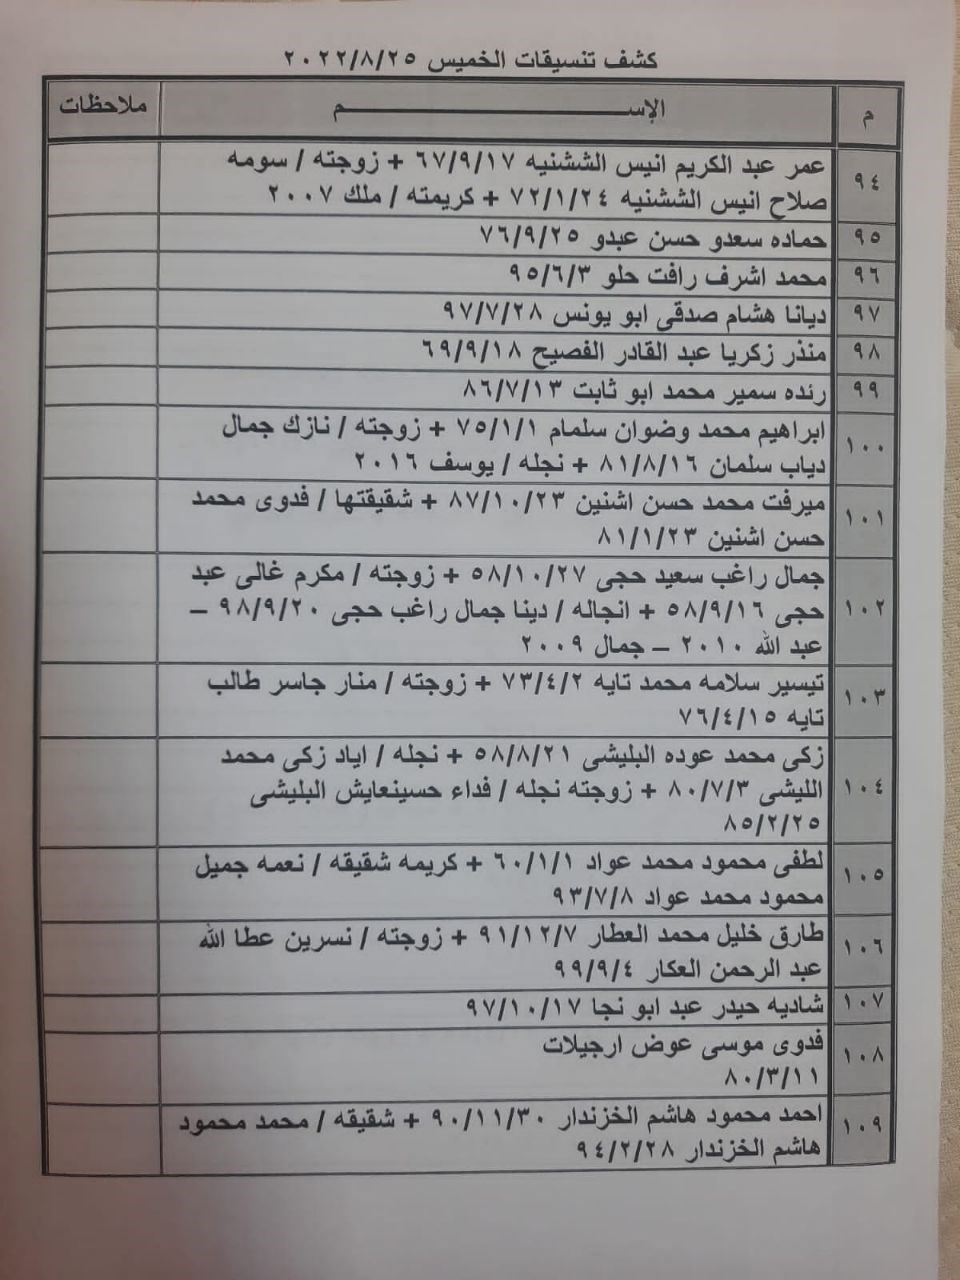 كشف تنسيقات الخميس ٢٠٢٢/٨/٢٥
م الإســـــــــم ملاحظات
٩٤ عمر عبد الكريم انيس الششنيه ٦٧/٩/١٧ + زوجته / سومه
صلاح انيس الششنيه ٧٢/١/٢٤ + كريمته / ملك ٢٠٠٧
٩٥ حماده سعدو حسن عبدو ٧٦/٩/٢٥
٩٦ محمد اشرف رافت حلو ٩٥/٦/٣
٩٧ ديانا هشام صدقى ابو يونس ٩٧/٧/٢٨
٩٨ منذر زكريا عبد القادر الفصيح ٦٩/٩/١٨
٩٩ رنده سمير محمد ابو ثابت ٨٦/٧/١٣
١٠٠ ابراهيم محمد وضوان سلمام ٧٥/١/١ + زوجته / نازك جمال
دياب سلمان ٨١/٨/١٦ + نجله / يوسف ٢٠١٦
١٠١ ميرفت محمد حسن اشنين ٨٧/١٠/٢٣ + شقيقتها / فدوى محمد
حسن اشنين ٨١/١/٢٣
١٠٢ جمال راغب سعيد حجى ٥٨/١٠/٢٧ + زوجته / مكرم غالى عبد
حجى ٥٨/٩/١٦ + انجاله / دينا جمال راغب حجى ٩٨/٩/٢٠ –
عبد الله ٢٠١٠ – جمال ٢٠٠٩
١٠٣ تيسير سلامه محمد تايه ٧٣/٤/٢ + زوجته / منار جاسر طالب
تايه ٧٦/٤/١٥
١٠٤ زكى محمد عوده البليشى ٥٨/٨/٢١ + نجله / اياد زكى محمد
الليشى ٨٠/٧/٣ + زوجته نجله / فداء حسينعايش البليشى
٨٥/٢/٢٥
١٠٥ لطفى محمود محمد عواد ٦٠/١/١ + كريمه شقيقه / نعمه جميل
محمود محمد عواد ٩٣/٧/٨
١٠٦ طارق خليل محمد العطار ٩١/١٢/٧ + زوجته / نسرين عطا الله
عبد الرحمن العكار ٩٩/٩/٤
١٠٧ شاديه حيدر عبد ابو نجا ٩٧/١٠/١٧
١٠٨ فدوى موسى عوض ارجيلات
٨٠/٣/١١
١٠٩ احمد محمود هاشم الخزندار ٩٠/١١/٣٠ + شقيقه / محمد محمود
هاشم الخزندار ٩٤/٢/٢٨